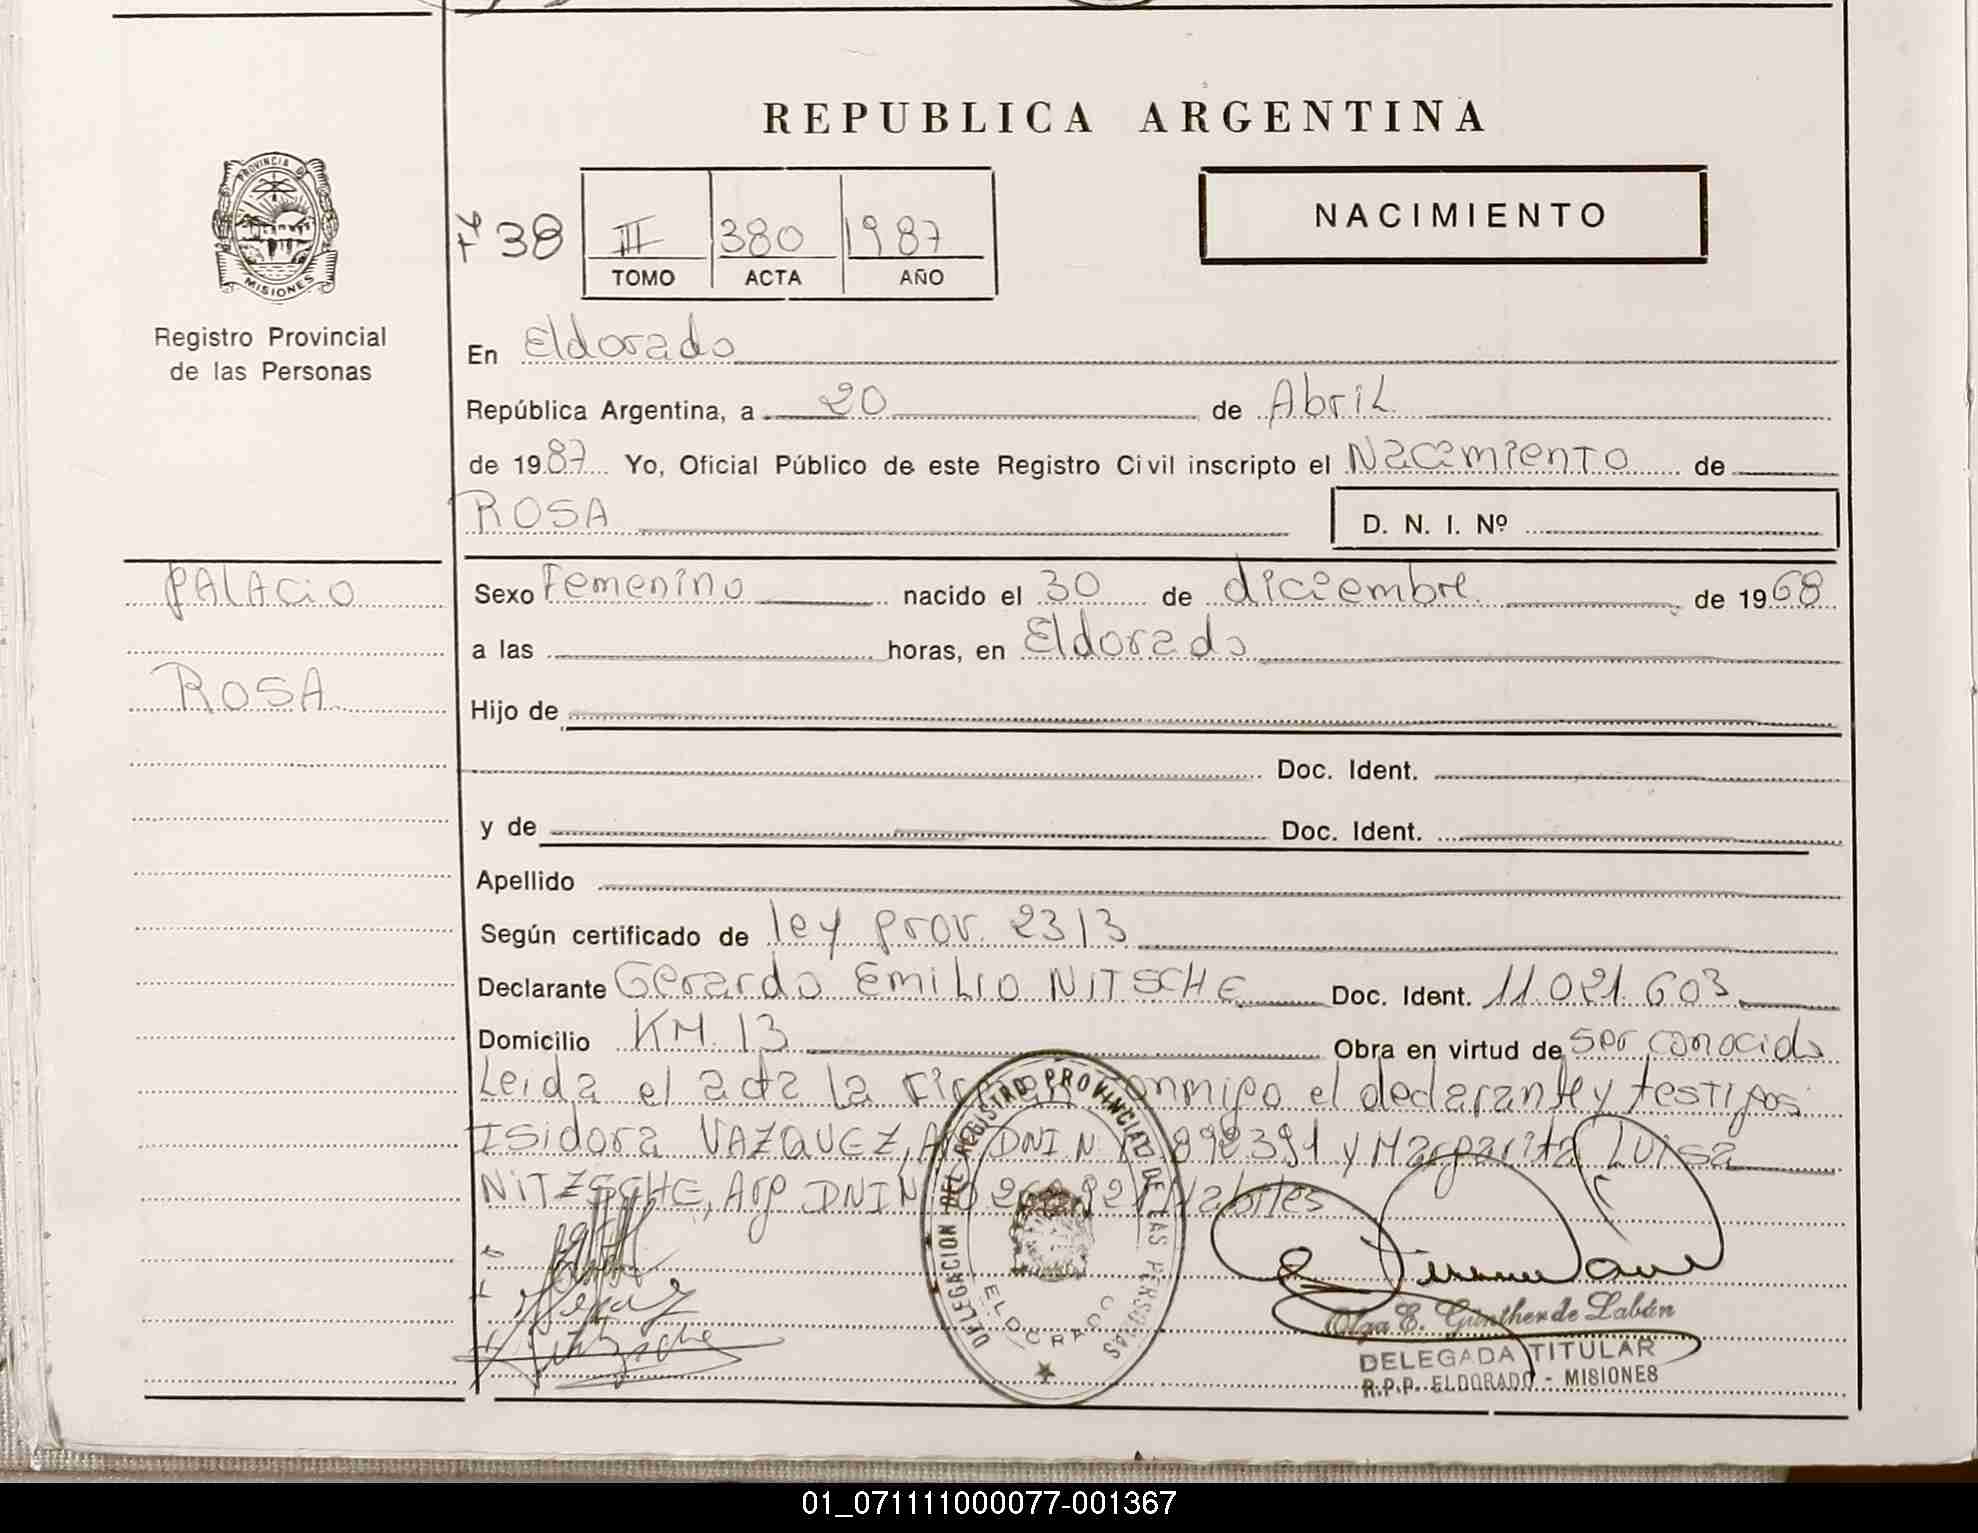 REPUBLICA ARGENTINA
PROVINCIA DE
MISIONES
Registro Provincial
de las Personas
38
III 380 1987
TOMO ACTA AÑO
NACIMIENTO
En Eldorado
República Argentina, a 20 de Abril
de 1987 Yo, Oficial Público de este Registro Civil inscripto el Nacimiento de
ROSA
D. N. I. Nº
PALACIO
ROSA
Sexo Femenino nacido el 30 de diciembre de 1968
a las horas, en Eldorado
Hijo de
Doc. Ident.
y de Doc. Ident.
Apellido
Según certificado de ley prov. 2313
Declarante Gerardo Emilio NITSCHE Doc. Ident. 11.021.603
Domicilio KM. 13 Obra en virtud de ser conocido
Leida el acta la conmigo el declarante y testigos
Isidora VAZQUEZ, DNI N 892391 y Margarita Luisa
NITZSCHE, Arg DNI N Habiles
DELEGACION DEL REGISTRO PROVINCIAL DE LAS PERSONAS
ELDORADO
Olga E. Günther de Labán
DELEGADA TITULAR
R.P.P. ELDORADO - MISIONES
01_071111000077-001367